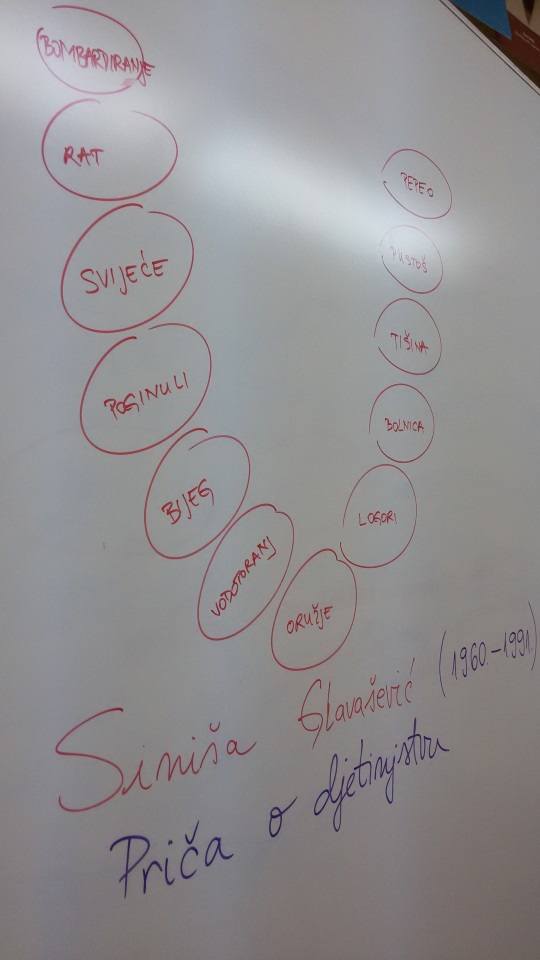 BOMBARDIRANJE
RAT
SVIJEĆE
POGINULI
BIJEG
VODOTORANJ
ORUŽJE
LOGORI
BOLNICA
TIŠINA
PUSTOŠ
PEPEO
Siniša Glavašević (1960.-1991.)
Priča o djetinjstvu